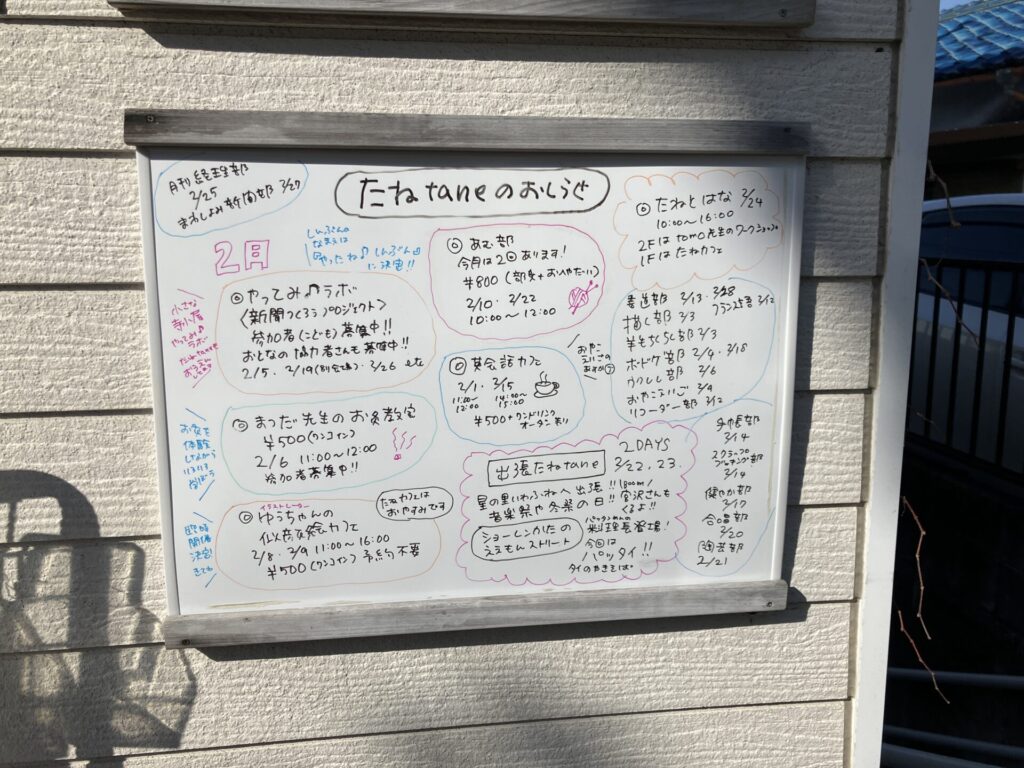 たねtaneのおしらせ
月刊経理部
2/25
まわしよみ新聞部 2/27
2月
しんぶんの
なまえは
「やったね♪しんぶん」
に決定!!
◎やってみ♪ラボ
〈新聞つくろうプロジェクト〉
参加者(こども)募集中!!
おとなの協力者さんも募集中!!
2/5. 2/19(別会場). 2/26 etc
小さな
寺小屋
やってみ♪
ラボ
◎まつだ先生のお灸教室
¥500(ワンコイン)
2/6 11:00〜12:00
参加者募集中!!
お灸を
体験
しながら
いろいろ
学ぼう
イラストレーター
◎ゆうちゃんの
似顔絵カフェ
2/8. 2/9 11:00〜16:00
¥500(ワンコイン)予約不要
たねカフェは
おやすみです
臨時
開催
決定!
きてね
◎あむ部
今月は2回あります!
¥800(部費+おへやだい)
2/10. 2/22
10:00〜12:00
◎英会話カフェ
2/1. 2/15
11:00〜12:00 14:00〜15:00
¥500+ワンドリンク
オーダー制
おやこ
えいごの
あすか
出張たねtane
2DAYS
2/22.23.
星の里いわふねへ出張!!
音楽祭や冬祭の日!!
1800m
宮沢さんも
くるよ!!
ショーレンかたの
ええもんストリート
パッタイめんの
料理長登場!
今回は
パッタイ!!
タイのやきそば。
◎たねとはな 2/24
10:00〜16:00
2Fはtomo先生のワークショップ
1Fはたねカフェ
書道部 2/13. 2/28
フランス語 2/12
描く部 2/3
羊毛ちくちく部 2/3
ボードゲ部 2/4. 2/18
うつしし部 2/6
おやこえいご 2/4
リコーダー部 2/12
手帳部
2/14
スクラップ
ブッキング部
2/14
健やか部
2/17
合唱部
2/20
園芸部
2/21